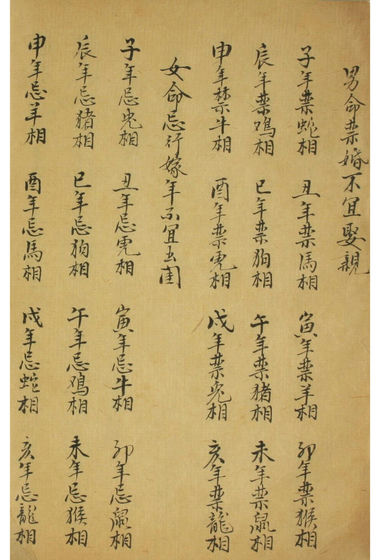 男命禁婚不宜娶親
子年禁蛇相 丑年禁馬相 寅年禁羊相 卯年禁猴相
辰年禁鸡相 巳年禁狗相 午年禁猪相 未年禁鼠相
申年禁牛相 酉年禁虎相 戌年禁兔相 亥年禁龍相
女命忌行嫁年不宜出閨
子年忌兔相 丑年忌虎相 寅年忌牛相 卯年忌鼠相
辰年忌猪相 巳年忌狗相 午年忌鸡相 未年忌猴相
申年忌羊相 酉年忌馬相 戌年忌蛇相 亥年忌龍相